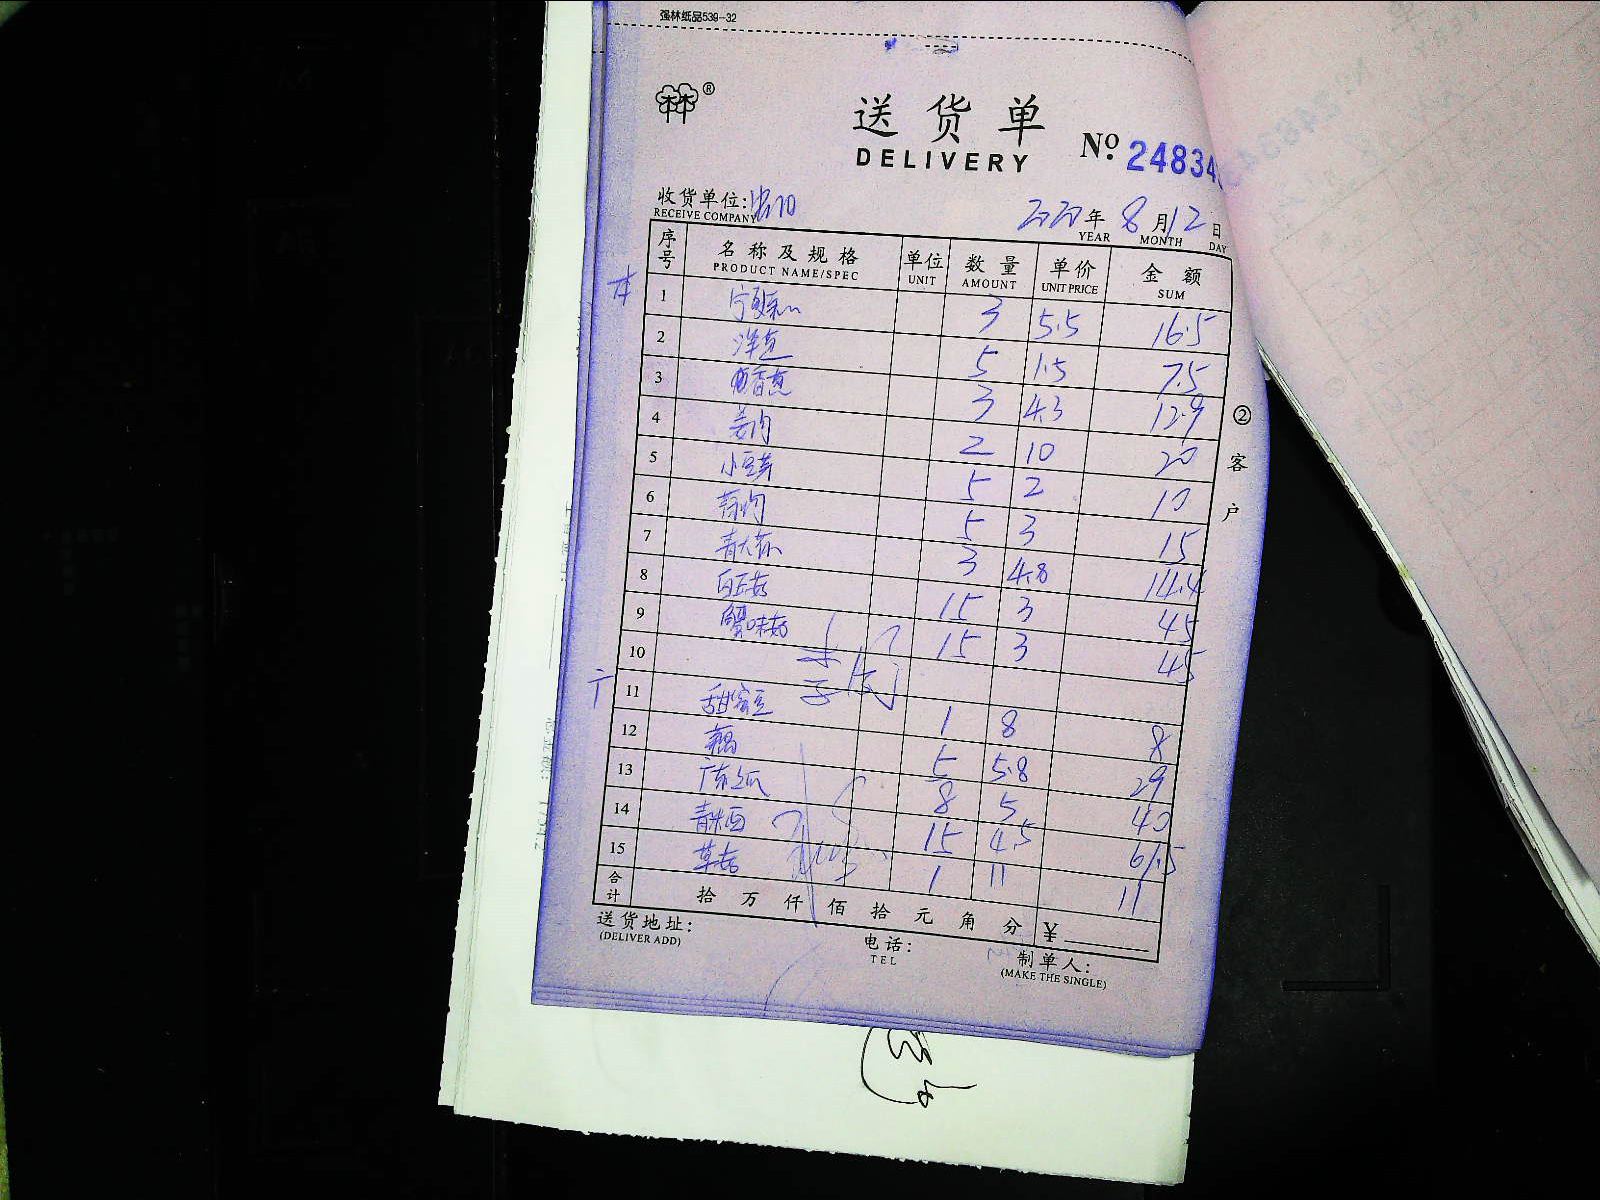 强林纸品539-32
林林®
送货单
DELIVERY
№ 24834
收货单位:
RECEIVE COMPANY
年 8月12日
YEAR MONTH DAY
序号 名称及规格 单位 数量 单价 金额
PRODUCT NAME/SPEC UNIT AMOUNT UNIT PRICE SUM
1 宁夏菜心 3 5.5 16.5
2 洋葱 5 1.5 7.5
3 香葱 3 4.3 12.9
4 姜肉 2 10 20
5 小豆芽 5 2 10
6 5 3 15
7 3 4.8 14.4
8 白玉菇 15 3 45
9 蟹味菇 15 3 45
10
11 甜蜜豆 1 8 8
12 藕 5 5.8 29
13 8 5 40
14 15 4.5 61.5
15 草菇 1 11 11
合计 拾 万 仟 佰 拾 元 角 分 ¥
②客户
送货地址:
(DELIVER ADD)
电话:
TEL
制单人:
(MAKE THE SINGLE)